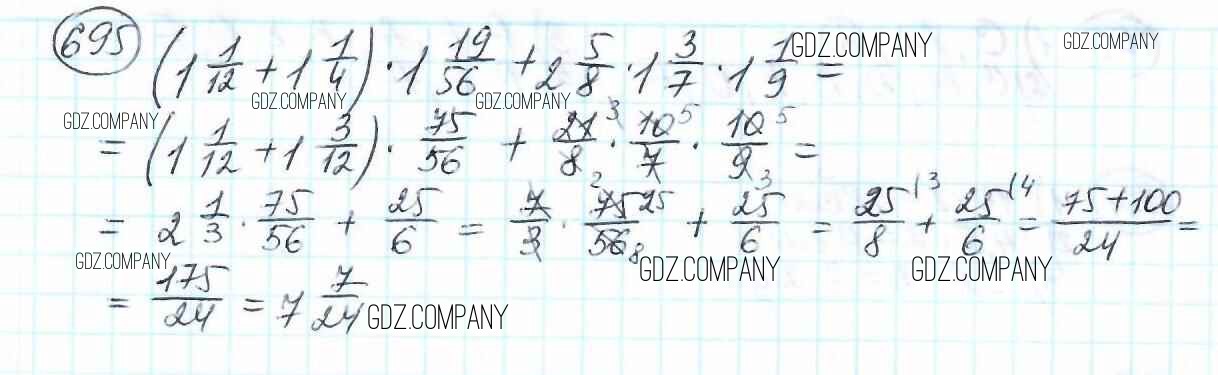 695 (1 1/12 + 1 1/4) · 1 19/56 + 2 5/8 · 1 3/7 · 1 1/9 = GDZ.COMPANY GDZ.COMPANY
GDZ.COMPANY GDZ.COMPANY GDZ.COMPANY
= (1 1/12 + 1 3/12) · 75/56 + 21 3/8 2 · 10 5/7 · 10 5/9 3 =
= 2 1/3 · 75/56 + 25/6 = 7/3 · 75 25/56 8 + 25/6 = 25/8 (3 + 25/6 (4 = 75+100/24 =
GDZ.COMPANY GDZ.COMPANY GDZ.COMPANY
= 175/24 = 7 7/24 GDZ.COMPANY